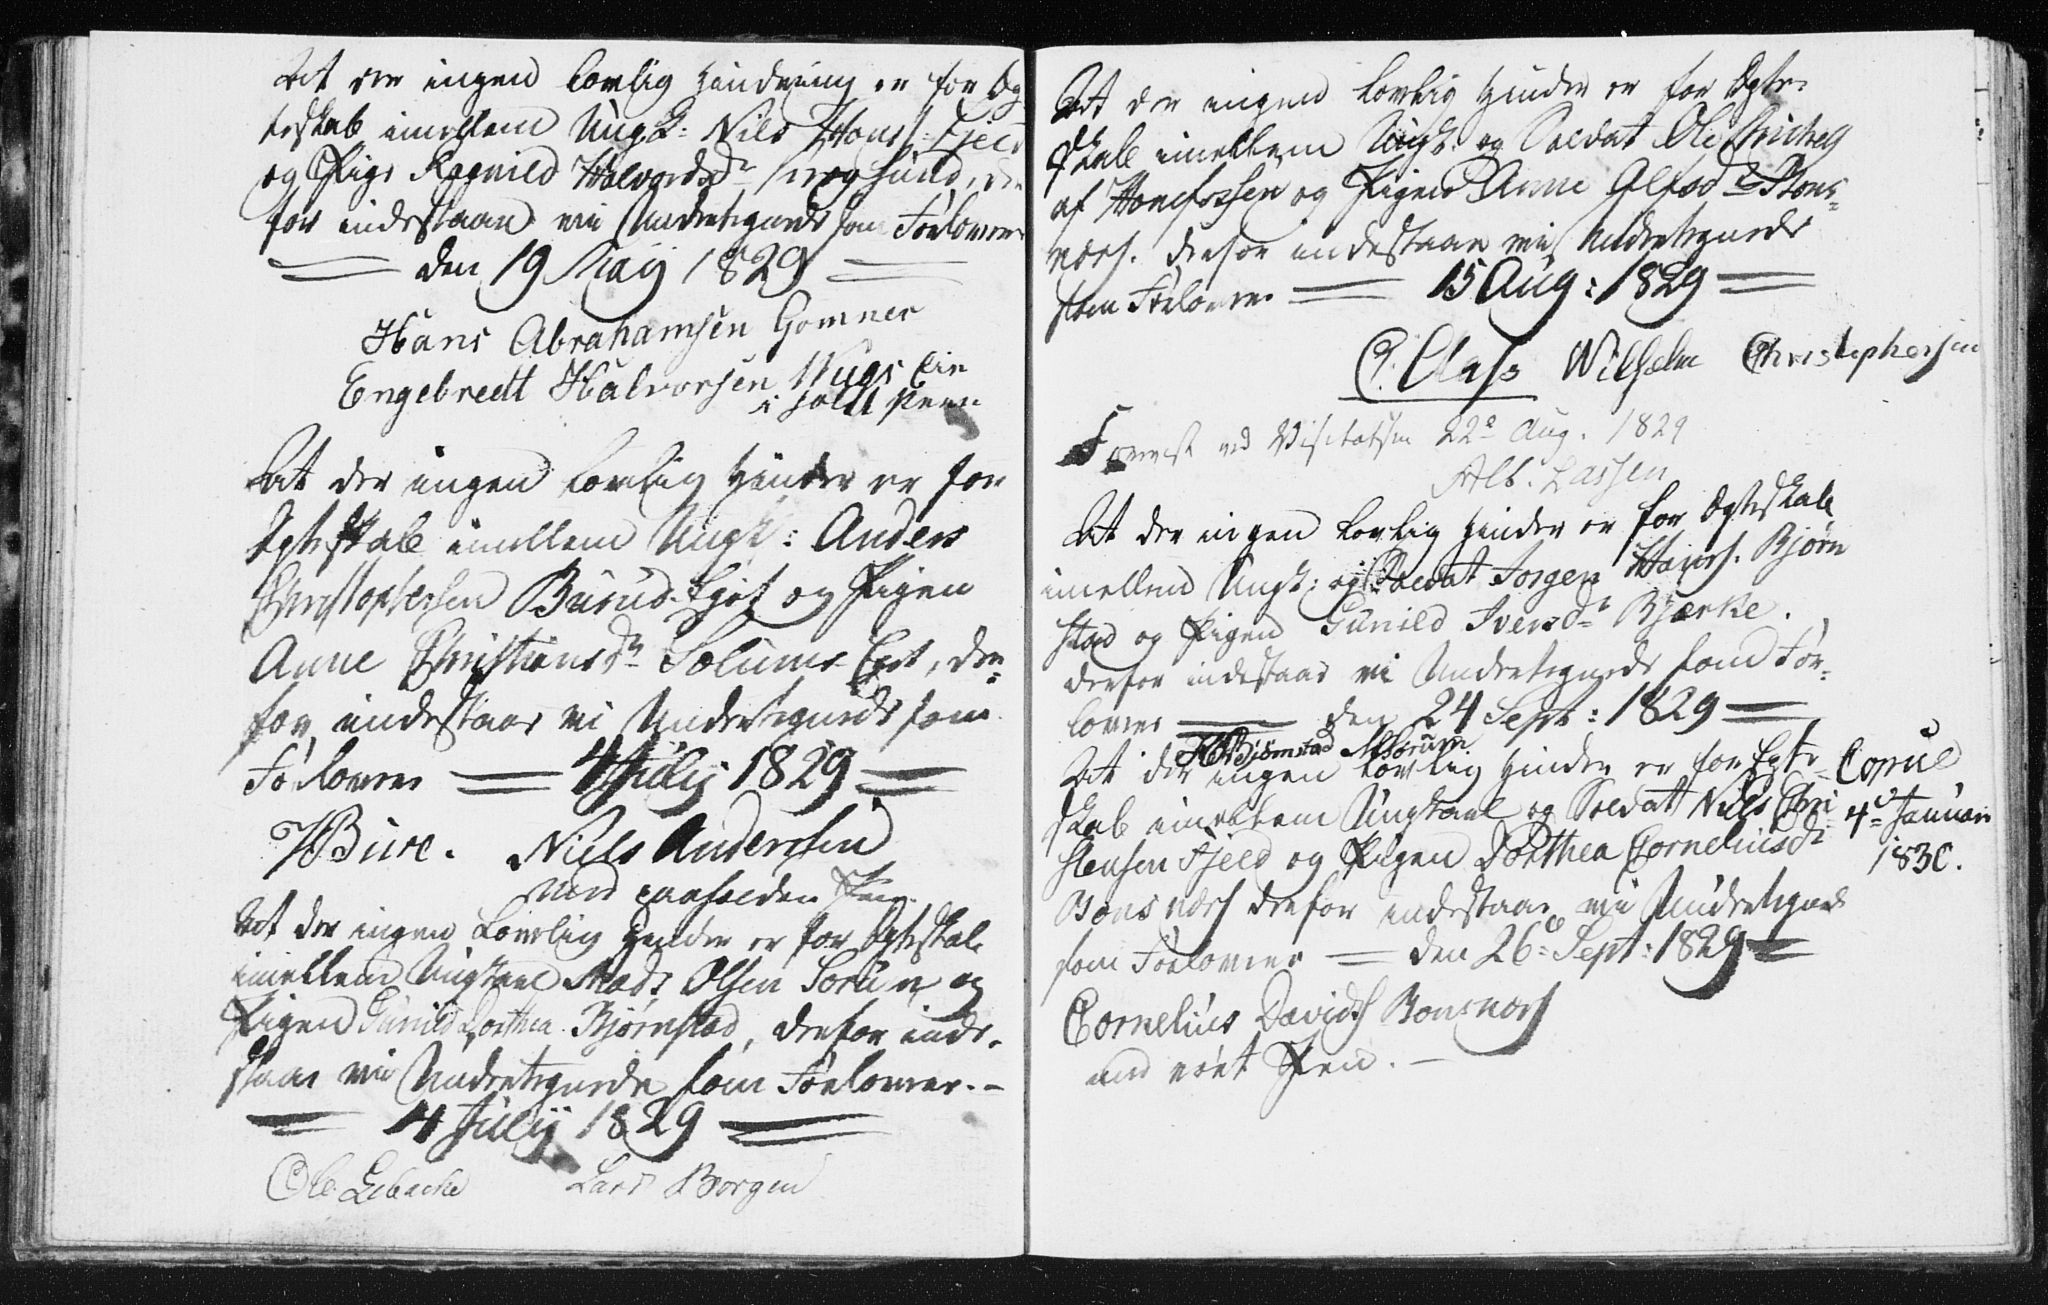 At der ingen lovlig Hindring er for Æg-
teskab imellem Ungk: Nils Hans: Fjeld
og Pige Ragnild Halvorsdr Krogsund, der
for indestaar vii Undertegnede som Forlovere
den 19 Maij 1829
Hans Abrahamsen Gomner
Engebrecdt Halvorsen
i holdt Penn
At der ingen lovlig Hinder er for
Ægteskab imellem Ungk: Anders
Christophersen Burud-Ejet og Pigen
Anne Christiansdr Solums-Ejet, der-
for indestaar vi Undertegnede som
Forlovere 4 Julij 1829
HBure. Niels Andersen
med paaholden Pen.
At der ingen Lovlig Hinder er for Ægteskab
imellem Ungkarl Mads Olsen Sorum og
Pigen Gunild Dorthea Bjørnstad, derfor inde-
staar vii Undertegnede som Forlovere.-
4 Julij 1829
Ole Lebacke Lars Borgen
At der ingen lovlig Hinder er for Ægte-
skab imellem Ungk: og Soldat Ole
af Honefossen og Pigen Anne Olsdr Bons-
næs. derfor indestaar vii Undertegnede
som Forlovere 15 Aug: 1829
C: Clasß Wilhelm Christophersen
Foreviist ved Visitatsen 22d Aug. 1829
Alb. Lassen
At der ingen lovlig Hinder er for Ægteskab
imellem Ungk: og Soldat Jorgen Hans. Bjørn
stad og Pigen Gunild Iversdr Bjærke.
derfor indestaar vi Undertegnede som For-
lovere den 24 Sept: 1829
HBjørnstad MSorum
At der ingen lovlig Hinder er for Egte-
skab imellem Ungkarl og Soldat Niels Chri
stensen Fjeld og Pigen Dorthea Corneliusdr
Bonsnæs derfor indestaar vii Undertegnede
som Forlovere den 26de Sept: 1829
Copul
4d Januari
1830.
Cornelius Davids Bonsnæs
med rört Pen.